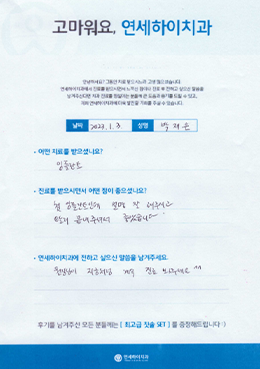 고마워요, 연세하이치과
안녕하세요? 그동안 치료 받으시느라 고생 많으셨습니다.
연세하이치과에서 진료를 받으시면서 느끼신 점이나 진료 후 전하고 싶으신 말씀을
남겨주신다면 치과 진료를 망설이는 분들께 큰 도움과 용기를 드릴 수 있고,
저희 연세하이치과에게 더욱 발전할 기회를 주실 수 있습니다.
날짜 2023. 1. 3. 성명 박
• 어떤 치료를 받으셨나요?
임플란트
• 진료를 받으시면서 어떤 점이 좋으셨나요?
첫 임플란트인데 설명 잘 해주시고
끝내주셔서 좋았습니다
• 연세하이치과에 전하고 싶으신 말씀을 남겨주세요
원장님 계속 진료 봐주세요 ^^
후기를 남겨주신 모든 분들께는 [ 최고급 칫솔 SET ] 를 증정해드립니다 :)
연세하이치과